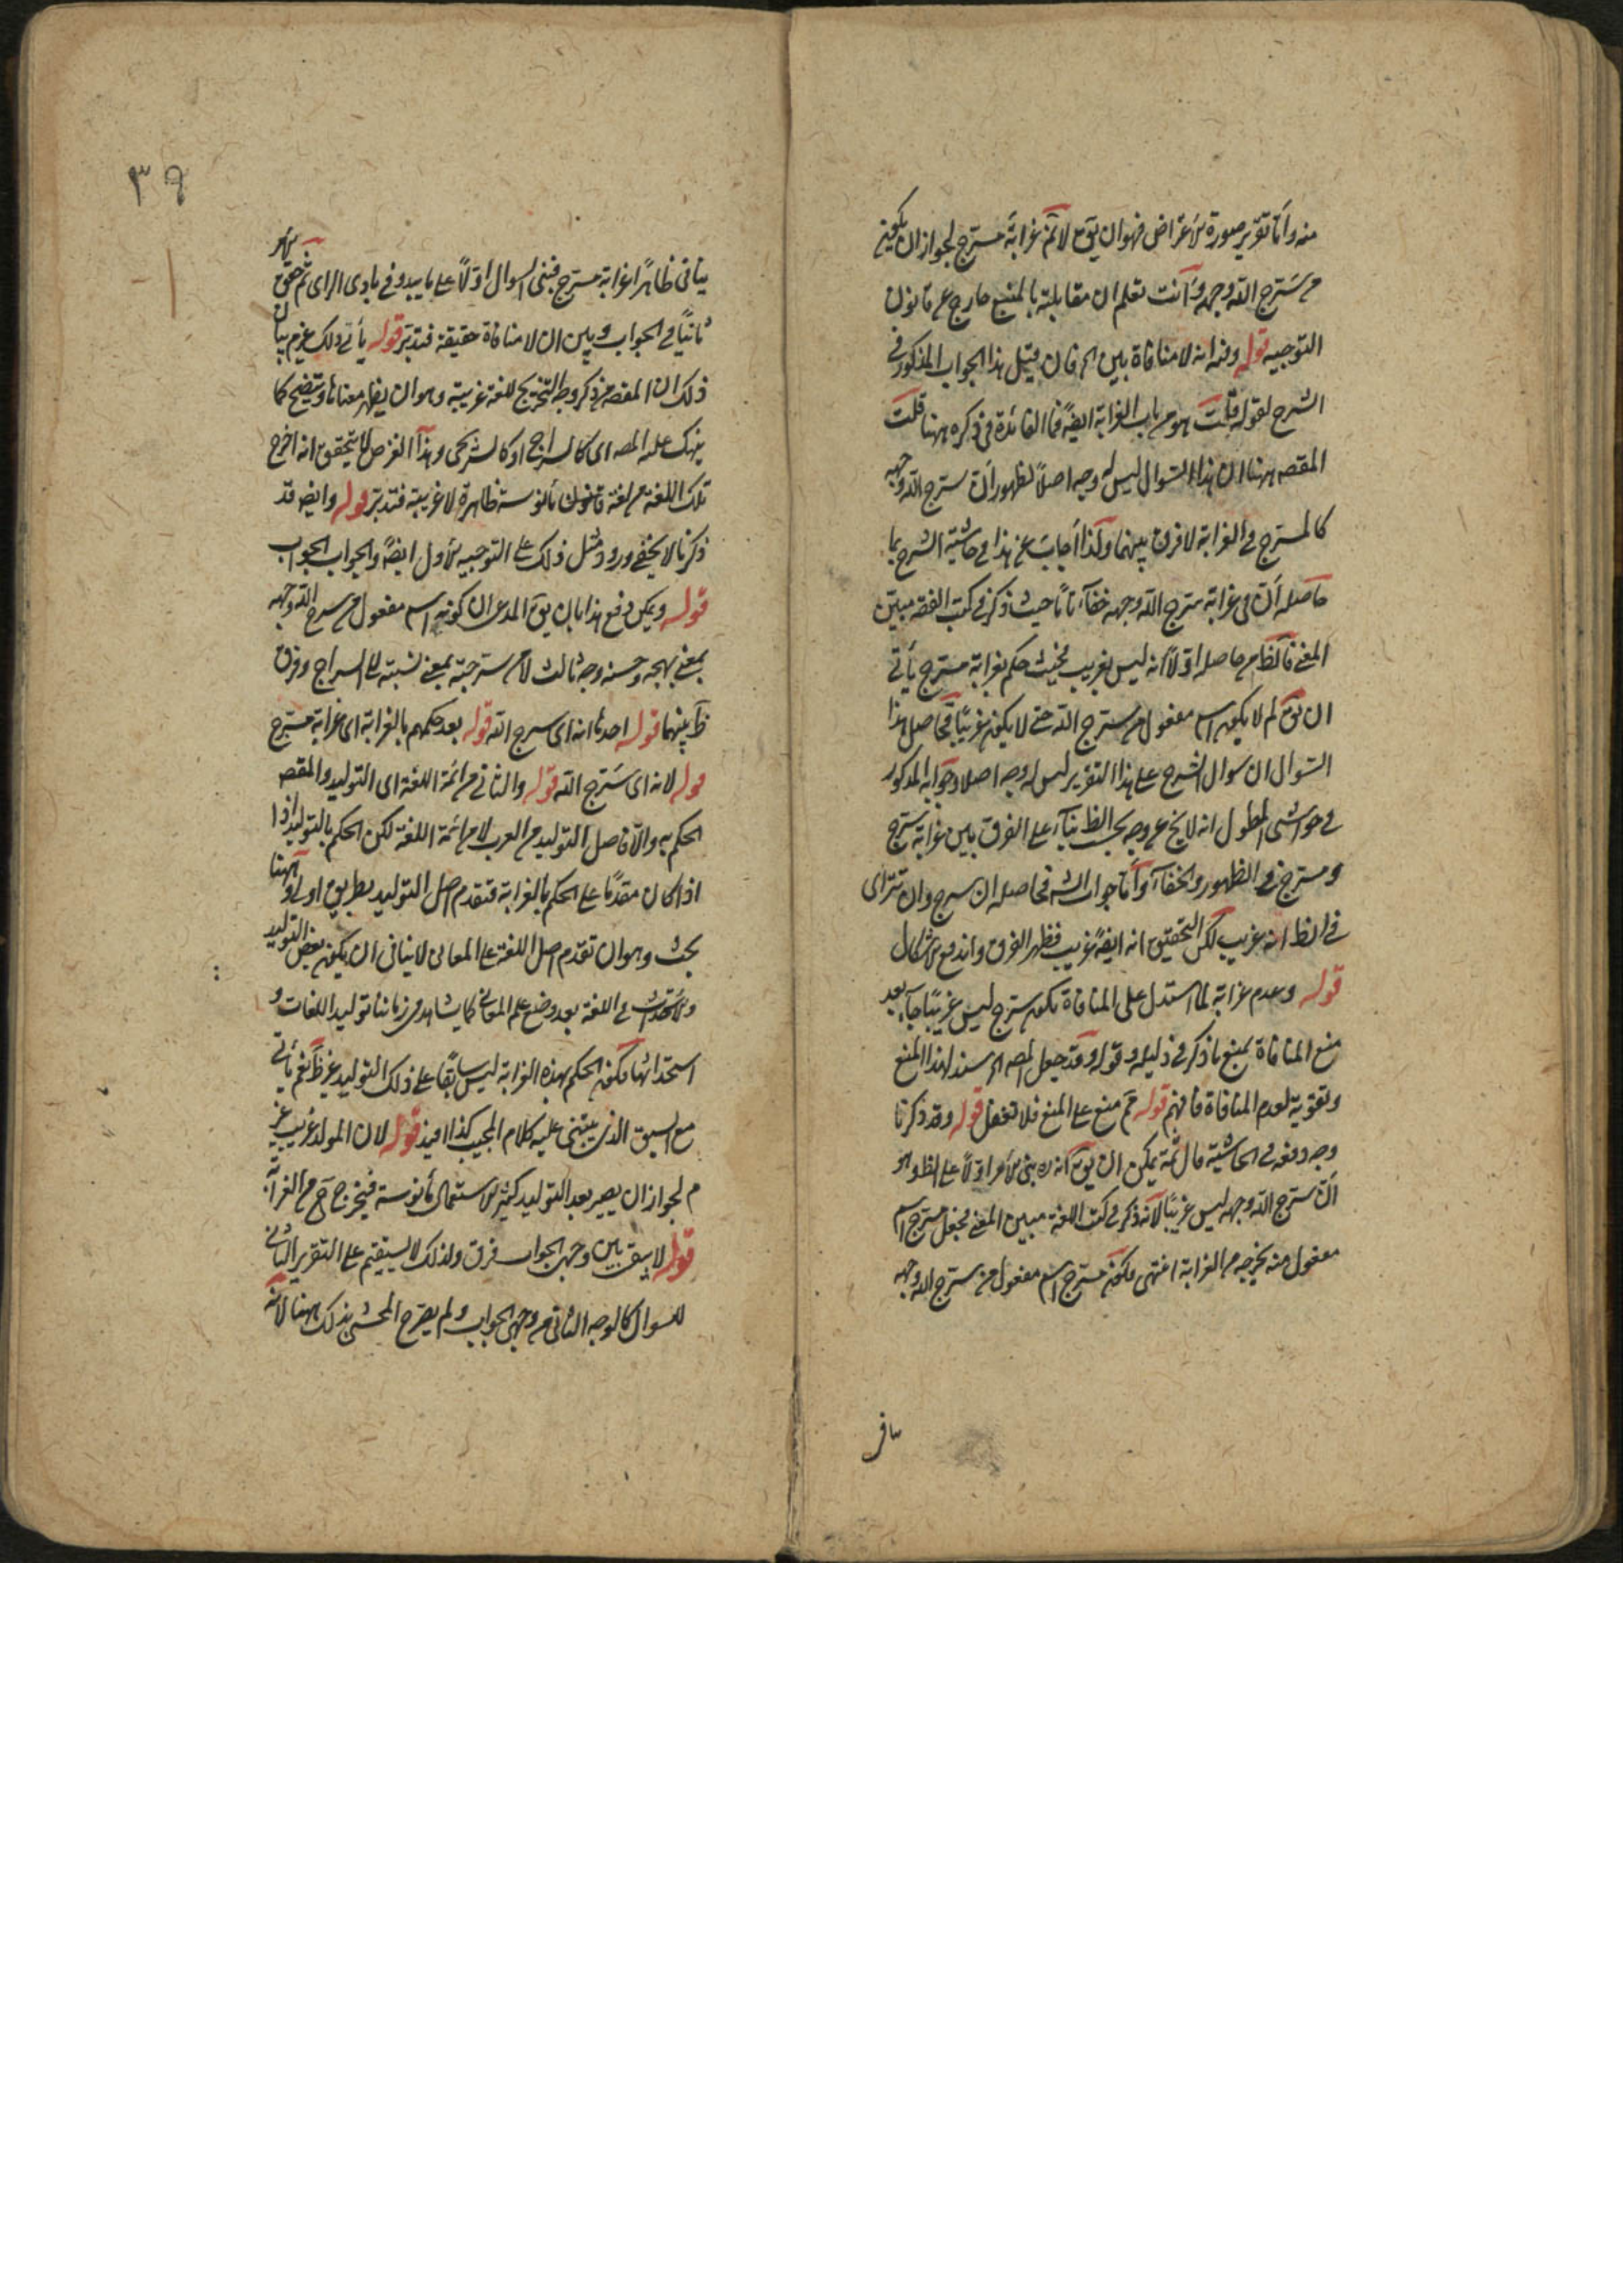 منه وأما تقرير صورة الاعتراض فهو ان يق لا نم غرابة مسرج لجواز ان يكون
من سرج الله وجهه وأنت تعلم ان مقابلته بالمنع خارج عن قانون
التوجيه قوله وفيه انه لا منافاة بين الخ فان قيل هذا الجواب المذكور في
الشرح لقوله قلت هو من باب الغرابة ايضًا فما الفائدة في ذكره ههنا قلت
المقصه ههنا ان هذا السؤال ليس له وجه اصلًا لظهور أن سرج الله وجهه
كالمسرج في الغرابة لا فرق بينهما ولذا أجاب عن هذا في حاشية الشرح بما
حاصله أن في غرابة سرج الله وجهه خفاء تاما حيث ذكر في كتب الفقه مبين
المعنى فالظ من حاصله اولًا انه ليس بغريب فحيث حكم بغرابة مسرج يأتى
ان يق لم لا يكون اسم مفعول من سرج الله حتى لا يكون غريبًا فحاصل هذا
السؤال ان سوال الشرح على هذا التقرير ليس له وجه اصلا وجوابه المذكور
في حواشى المطول انه لا يخ عن وجه بحسب الظ بناء على الفرق بين غرابة سرج
ومسرج في الظهور والخفاء وأما جواب الشه فحاصله ان سرج وان تترائ
في الظ انه غريب لكن التحقيق انه ايضًا غريب فظهر الفرق واندفع الاشكال
قوله وعدم غرابة لما استدل على المنافاة بكون سرج ليس غريبًا جاء بعد
منع المنافاة بمنع ما ذكر في دليله وقوله وقد جعل المصه الخ سند لهذا المنع
وتقوية لعدم المنافاة فافهم قوله ثم منع على المنع فلا تغفل قوله وقد ذكرنا
وجه دفعه في الحاشية قال ثمة يمكن ان يق انه بنى الامر اولًا على الظ وهو
أن سرج الله وجهه ليس غريبًا لأنه ذكر في كتب اللغة مبين المعنى فجعل مسرج اسم
مفعول منه يخرجه من الغرابة انتهى فكون مسرج اسم مفعول من سرج الله وجهه
٣٩
ينافى ظاهرًا غرابة مسرج فبنى السوال اولًا على ما يبدو في بادى الراى ثم حقق
ثانيًا في الجواب وبين ان لا منافاة حقيقة فتدبر قوله يأتى ذلك غرم بيان
ذلك ان المقصه من ذكر وجه التخريج للغة غريبة وهو ان يظهر معناها ويتضح كما
ينهك عليه المصه اى كالسراج او كالسريجى وهذا الغرض لا يتحقق انه اخرج
تلك اللغة من لغة مأنوسة ظاهرة لا غريبة فتدبر قوله وايضا قد
ذكرنا لا يخفى ورود مثل ذلك على التوجيه الأول ايضًا والجواب الجواب
قوله ويمكن دفع هذا بان يق المدعى ان كونه اسم مفعول من سرج الله وجهه
بمعنى بهجه وحسنه وجه ثالث لا من سرجته بمعنى نسبته الى السراج وفرق
ظ بينهما قوله احدها انه اى سرج الله قوله بعد حكمهم بالغرابة اى غرابة مسرج
قوله لانه اى سرج الله قوله والثانى من ائمة اللغة اى التوليد والمقصه
الحكم به والا فاصل التوليد من العرب لا من ائمة اللغة لكن الحكم بالتوليد اذا
اذا كان مقدمًا على الحكم بالغرابة فتقدم اصل التوليد بطريق اولى وههنا
بحث وهو ان تقدم اصل اللغة على المعانى لا ينافى ان يكون بعض التوليد
والاستحداث في اللغة بعد وضع علم المعانى كما يشاهد في زماننا توليد اللغات و
استحداثها فكون الحكم بهذه الغرابة ليس سابقًا على ذلك التوليد غير ظ نعم يأتى
مع السبق الذى يبتنى عليه كلام المجيب كذا افيد قوله لان المولد غريب غير
م لجواز ان يصير بعد التوليد كثير الاستعمال مأنوسة فيخرج ح من الغرابة
قوله لا يبقى بين وجهى الجواب فرق ولذلك لا يستقيم على التقرير الثانى
للسوال كالوجه الثانى من وجهى الجواب ولم يصرح المحشى بذلك ههنا لأنه